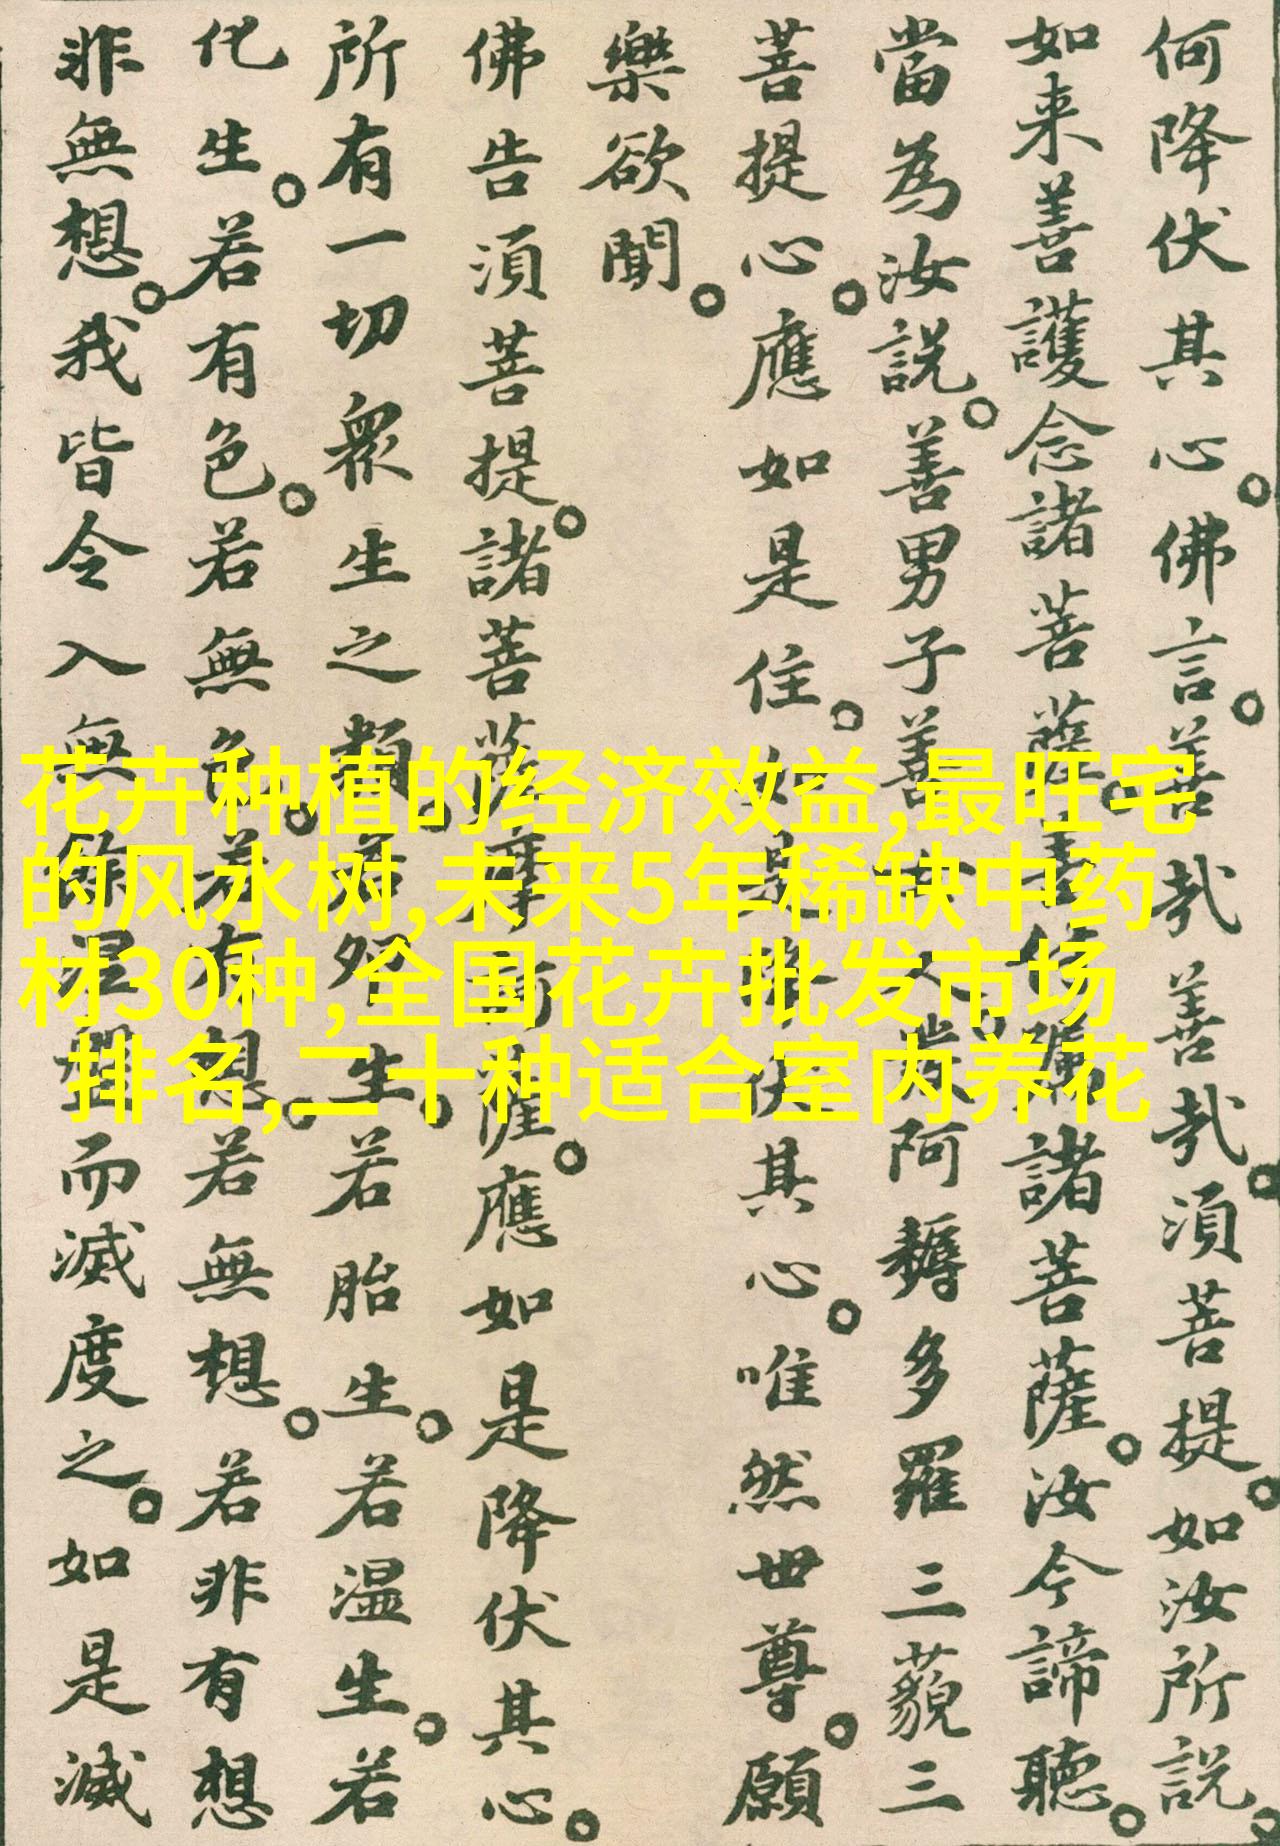 何降伏其心。佛言。善哉善哉。須菩提。如汝所説。
如来善護念諸菩薩。善付囑諸菩薩。汝今諦聽。
當為汝説。善男子善女人。發阿耨多羅三藐三
菩提心。應如是住。如是降伏其心。唯然世尊。願
樂欲聞。
佛告須菩提。諸菩薩摩訶薩。應如是降伏其心。
所有一切眾生之類。若卵生。若胎生。若温生。若
化生。若有色。若無色。若有想。若無想。若非有想
非無想。我皆令入無餘涅槃而滅度之。如是滅
花卉种植的经济效益,最旺宅
的风水树,未来5年稀缺中药
材30种,全国花卉批发市场
排名,二十种适合室内养花